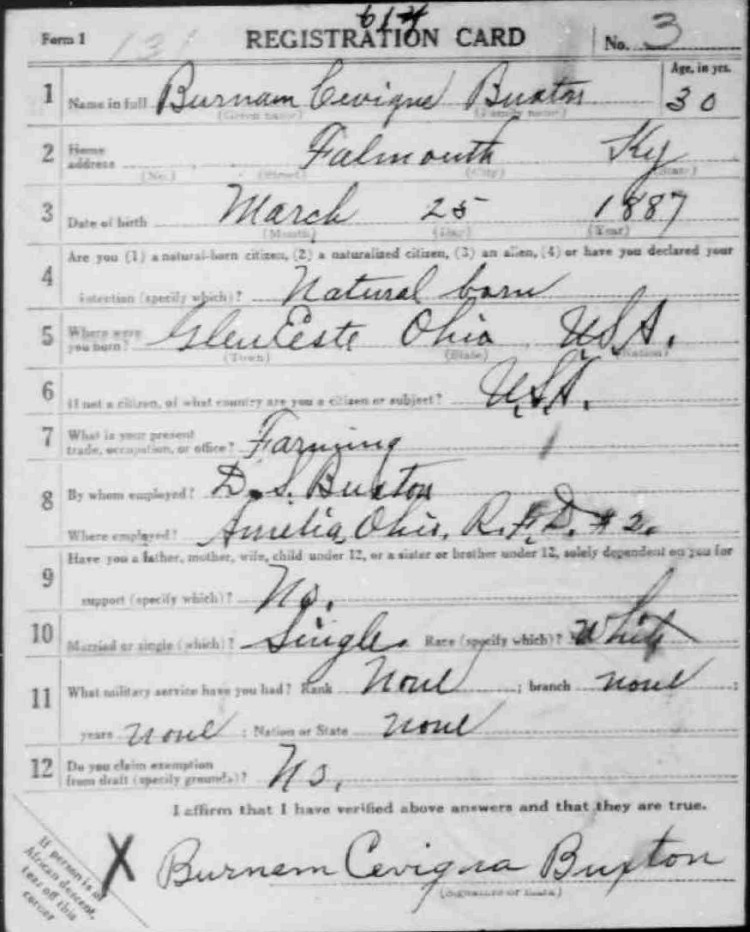 614
Form 1 131 REGISTRATION CARD No. 3
Age, in yrs.
1 Name in full Burnam Cevigna Buxton 30
(Given name) (Family name)
2 Home address Falmouth Ky
(No.) (Street) (City) (State)
3 Date of birth March 25 1887
(Month) (Day) (Year)
Are you (1) a natural-born citizen, (2) a naturalized citizen, (3) an alien, (4) or have you declared your
4 intention (specify which)? Natural born
5 Where were you born? GlenEeste Ohio U.S.A.
(Town) (State) (Nation)
6 If not a citizen, of what country are you a citizen or subject? U.S.A.
7 What is your present trade, occupation, or office? Farming
8 By whom employed? D. S. Buxton
Where employed? Amelia, Ohio, R.F.D. #2.
Have you a father, mother, wife, child under 12, or a sister or brother under 12, solely dependent on you for
9 support (specify which)? No.
10 Married or single (which)? Single. Race (specify which)? White
11 What military service have you had? Rank None ; branch none ;
years none ; Nation or State none
12 Do you claim exemption from draft (specify grounds)? No.
I affirm that I have verified above answers and that they are true.
If person is of
African descent,
tear off this
corner
X Burnam Cevigna Buxton
(Signature or mark)